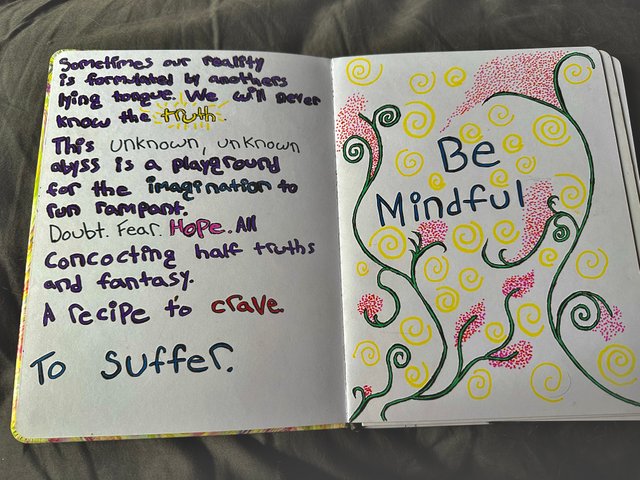 Sometimes our reality
is formulated by anothers
lying tongue. We will never
know the truth.
This unknown, unknown
abyss is a playground
for the imagination to
run rampant.
Doubt. Fear. Hope. All
Concocting half truths
and fantasy.
A recipe to crave.
To suffer.
Be
Mindful